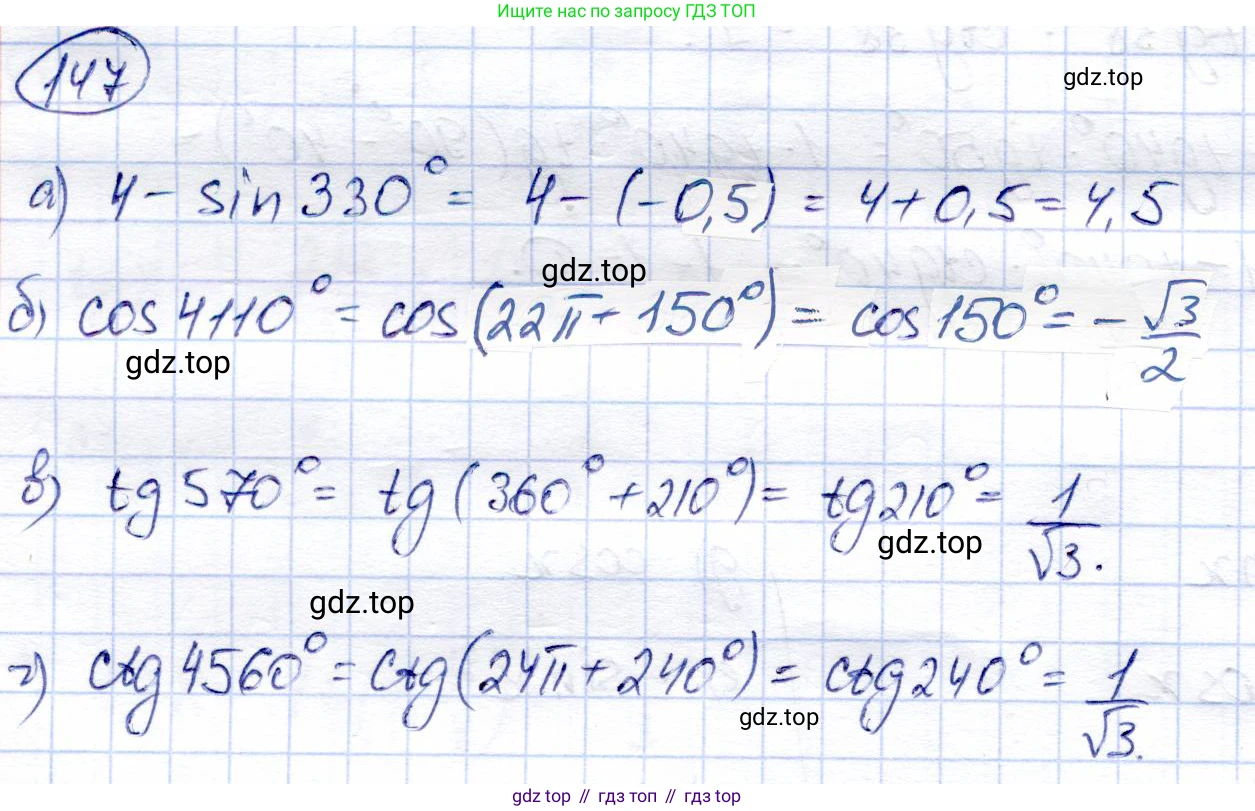 Ищите нас по запросу ГДЗ ТОП
147
gdz.top
а) 4 - sin 330° = 4 - (-0,5) = 4 + 0,5 = 4,5
gdz.top
б) cos 4110° = cos (22π + 150°) = cos 150° = - √3/2
gdz.top
в) tg 570° = tg (360° + 210°) = tg 210° = 1/√3.
gdz.top
gdz.top
г) ctg 4560° = ctg (24π + 240°) = ctg 240° = 1/√3.
gdz.top
gdz top // гдз топ // gdz top